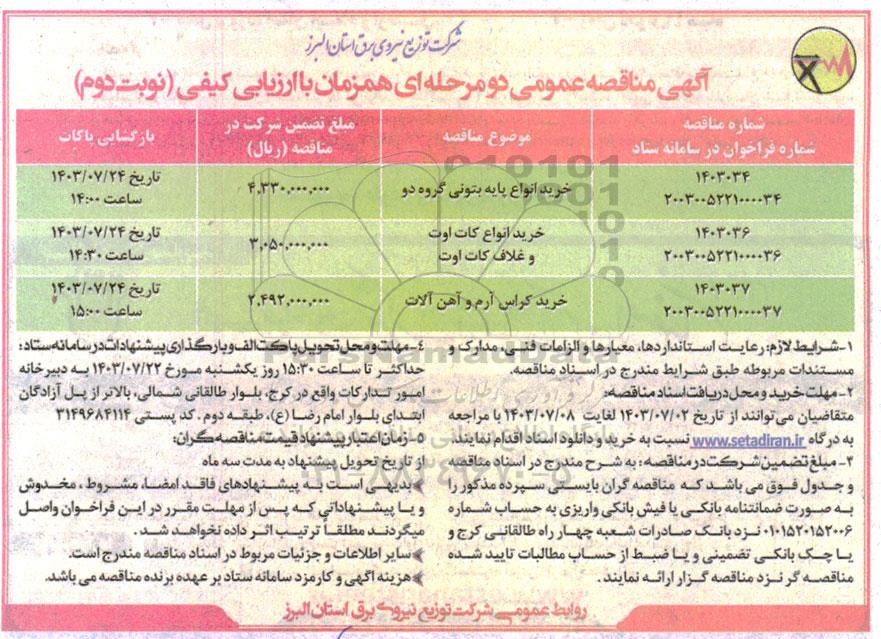 شرکت توزیع نیروی برق استان البرز
آگهی مناقصه عمومی دو مرحله ای همزمان با ارزیابی کیفی (نوبت دوم)
شماره مناقصه
شماره فراخوان در سامانه ستاد
موضوع مناقصه
مبلغ تضمین شرکت در
مناقصه (ریال)
بازگشایی پاکات
۱۴۰۳۰۳۴
۲۰۰۳۰۰۵۲۲۱۰۰۰۰۳۴
خرید انواع پایه بتونی گروه دو
۴,۳۳۰,۰۰۰,۰۰۰
تاریخ ۱۴۰۳/۰۷/۲۴
ساعت ۱۴:۰۰
۱۴۰۳۰۳۶
۲۰۰۳۰۰۵۲۲۱۰۰۰۰۳۶
خرید انواع کات اوت
و غلاف کات اوت
۳,۰۵۰,۰۰۰,۰۰۰
تاریخ ۱۴۰۳/۰۷/۲۴
ساعت ۱۴:۳۰
۱۴۰۳۰۳۷
۲۰۰۳۰۰۵۲۲۱۰۰۰۰۳۷
خرید کراس آرم و آهن آلات
۲,۴۹۲,۰۰۰,۰۰۰
تاریخ ۱۴۰۳/۰۷/۲۴
ساعت ۱۵:۰۰
۱-شرایط لازم: رعایت استانداردها، معیارها و الزامات فنی، مدارک و
مستندات مربوطه طبق شرایط مندرج در اسناد مناقصه.
۲- مهلت خرید و محل دریافت اسناد مناقصه:
متقاضیان می‌توانند از تاریخ ۱۴۰۳/۰۷/۰۲ لغایت ۱۴۰۳/۰۷/۰۸ با مراجعه
به درگاه www.setadiran.ir نسبت به خرید و دانلود اسناد اقدام نمایند.
۳- مبلغ تضمین شرکت در مناقصه: به شرح مندرج در اسناد مناقصه
و جدول فوق می باشد که مناقصه گران بایستی سپرده مذکور را
به صورت ضمانتنامه بانکی یا فیش بانکی واریزی به حساب شماره
۰۱۰۱۵۲۰۱۵۲۰۰۶ نزد بانک صادرات شعبه چهار راه طالقانی کرج و
یا چک بانکی تضمینی و یا ضبط از حساب مطالبات تایید شده
مناقصه گر نزد مناقصه گزار ارائه نمایند.
۴- مهلت و محل تحویل پاکت الف و بارگذاری پیشنهادات در سامانه ستاد:
حداکثر تا ساعت ۱۵:۳۰ روز یکشنبه مورخ ۱۴۰۳/۰۷/۲۲ به دبیرخانه
امور تدارکات واقع در کرج، بلوار طالقانی شمالی، بالاتر از پل آزادگان
ابتدای بلوار امام رضا (ع)، طبقه دوم. کد پستی ۳۱۴۹۶۸۴۱۱۴
۵- زمان اعتبار پیشنهاد قیمت مناقصه گران:
از تاریخ تحویل پیشنهاد به مدت سه ماه
بدیهی است به پیشنهادهای فاقد امضا، مشروط، مخدوش
و یا پیشنهاداتی که پس از مهلت مقرر در این فراخوان واصل
میگردند مطلقاً ترتیب اثر داده نخواهد شد.
سایر اطلاعات و جزئیات مربوط در اسناد مناقصه مندرج است.
هزینه آگهی و کارمزد سامانه ستاد بر عهده برنده مناقصه می باشد.
روابط عمومی شرکت توزیع نیروی برق استان البرز
ParsNamadData